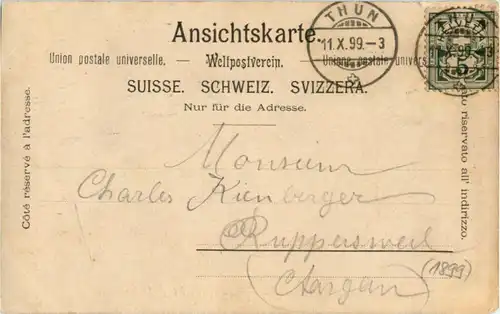 THUN
Ansichtskarte.
11.X.99.–3
Union postale universelle. — Weltpostverein. — Unione postale univers
SUISSE. SCHWEIZ. SVIZZERA.
Nur für die Adresse.
Côté réservé à l'adresse.
riservato all' indirizzo.
THUN
99
5
Monsieur
Charles Kienberger
Ruppersweil
(Aargau)
(1899)